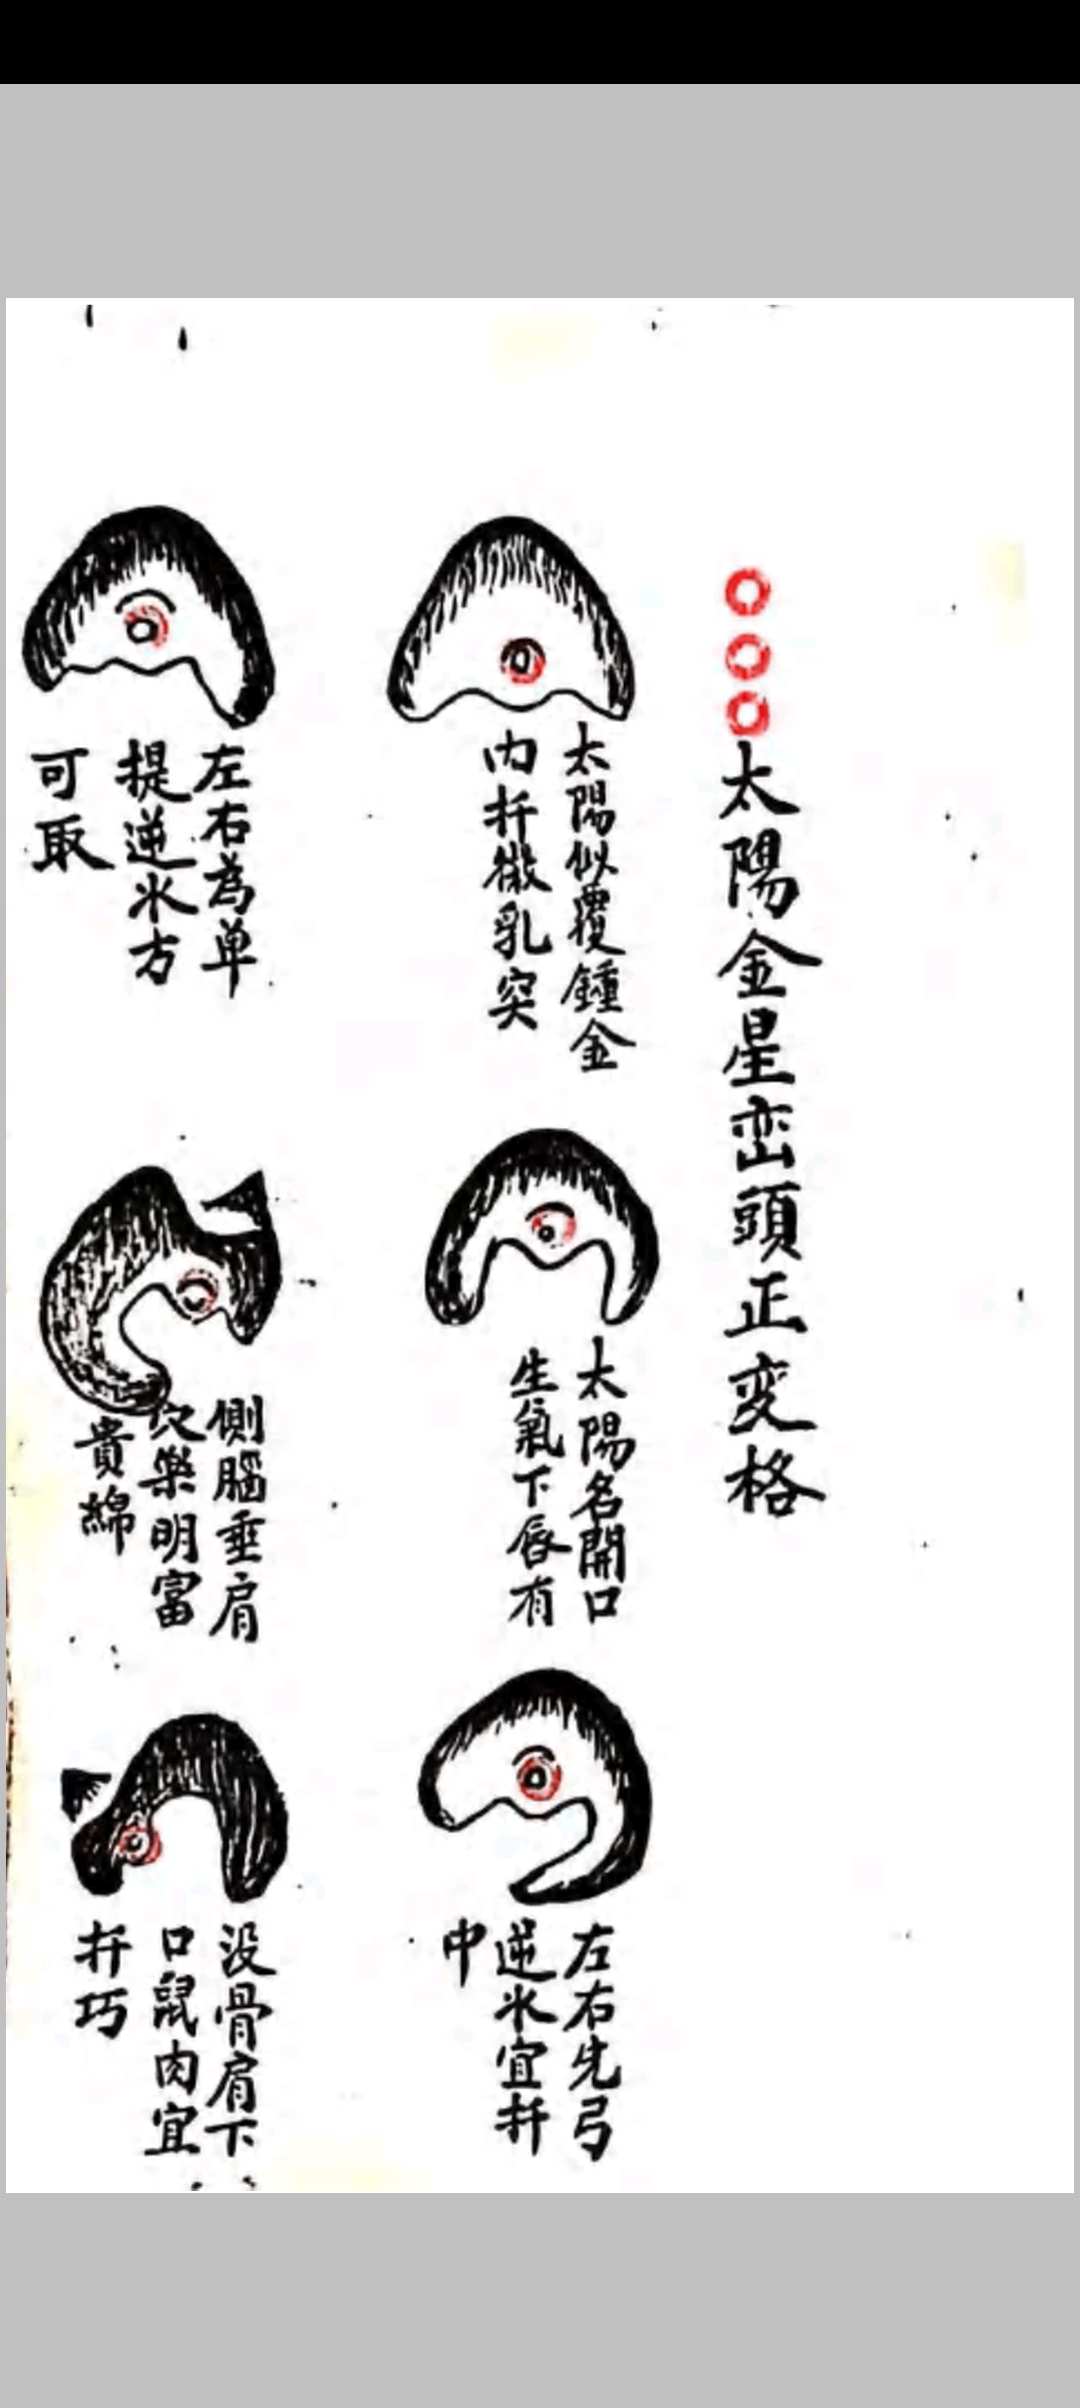 太陽金星峦頭正变格
太陽似覆鍾金
內扦微乳突
太陽名開口
生氣下唇有
左右先弓
逆水宜扦
中
左右為单
提逆水方
可取
側腦垂肩
穴樂明富
貴綿
没骨肩下
口鼠肉宜
扦巧